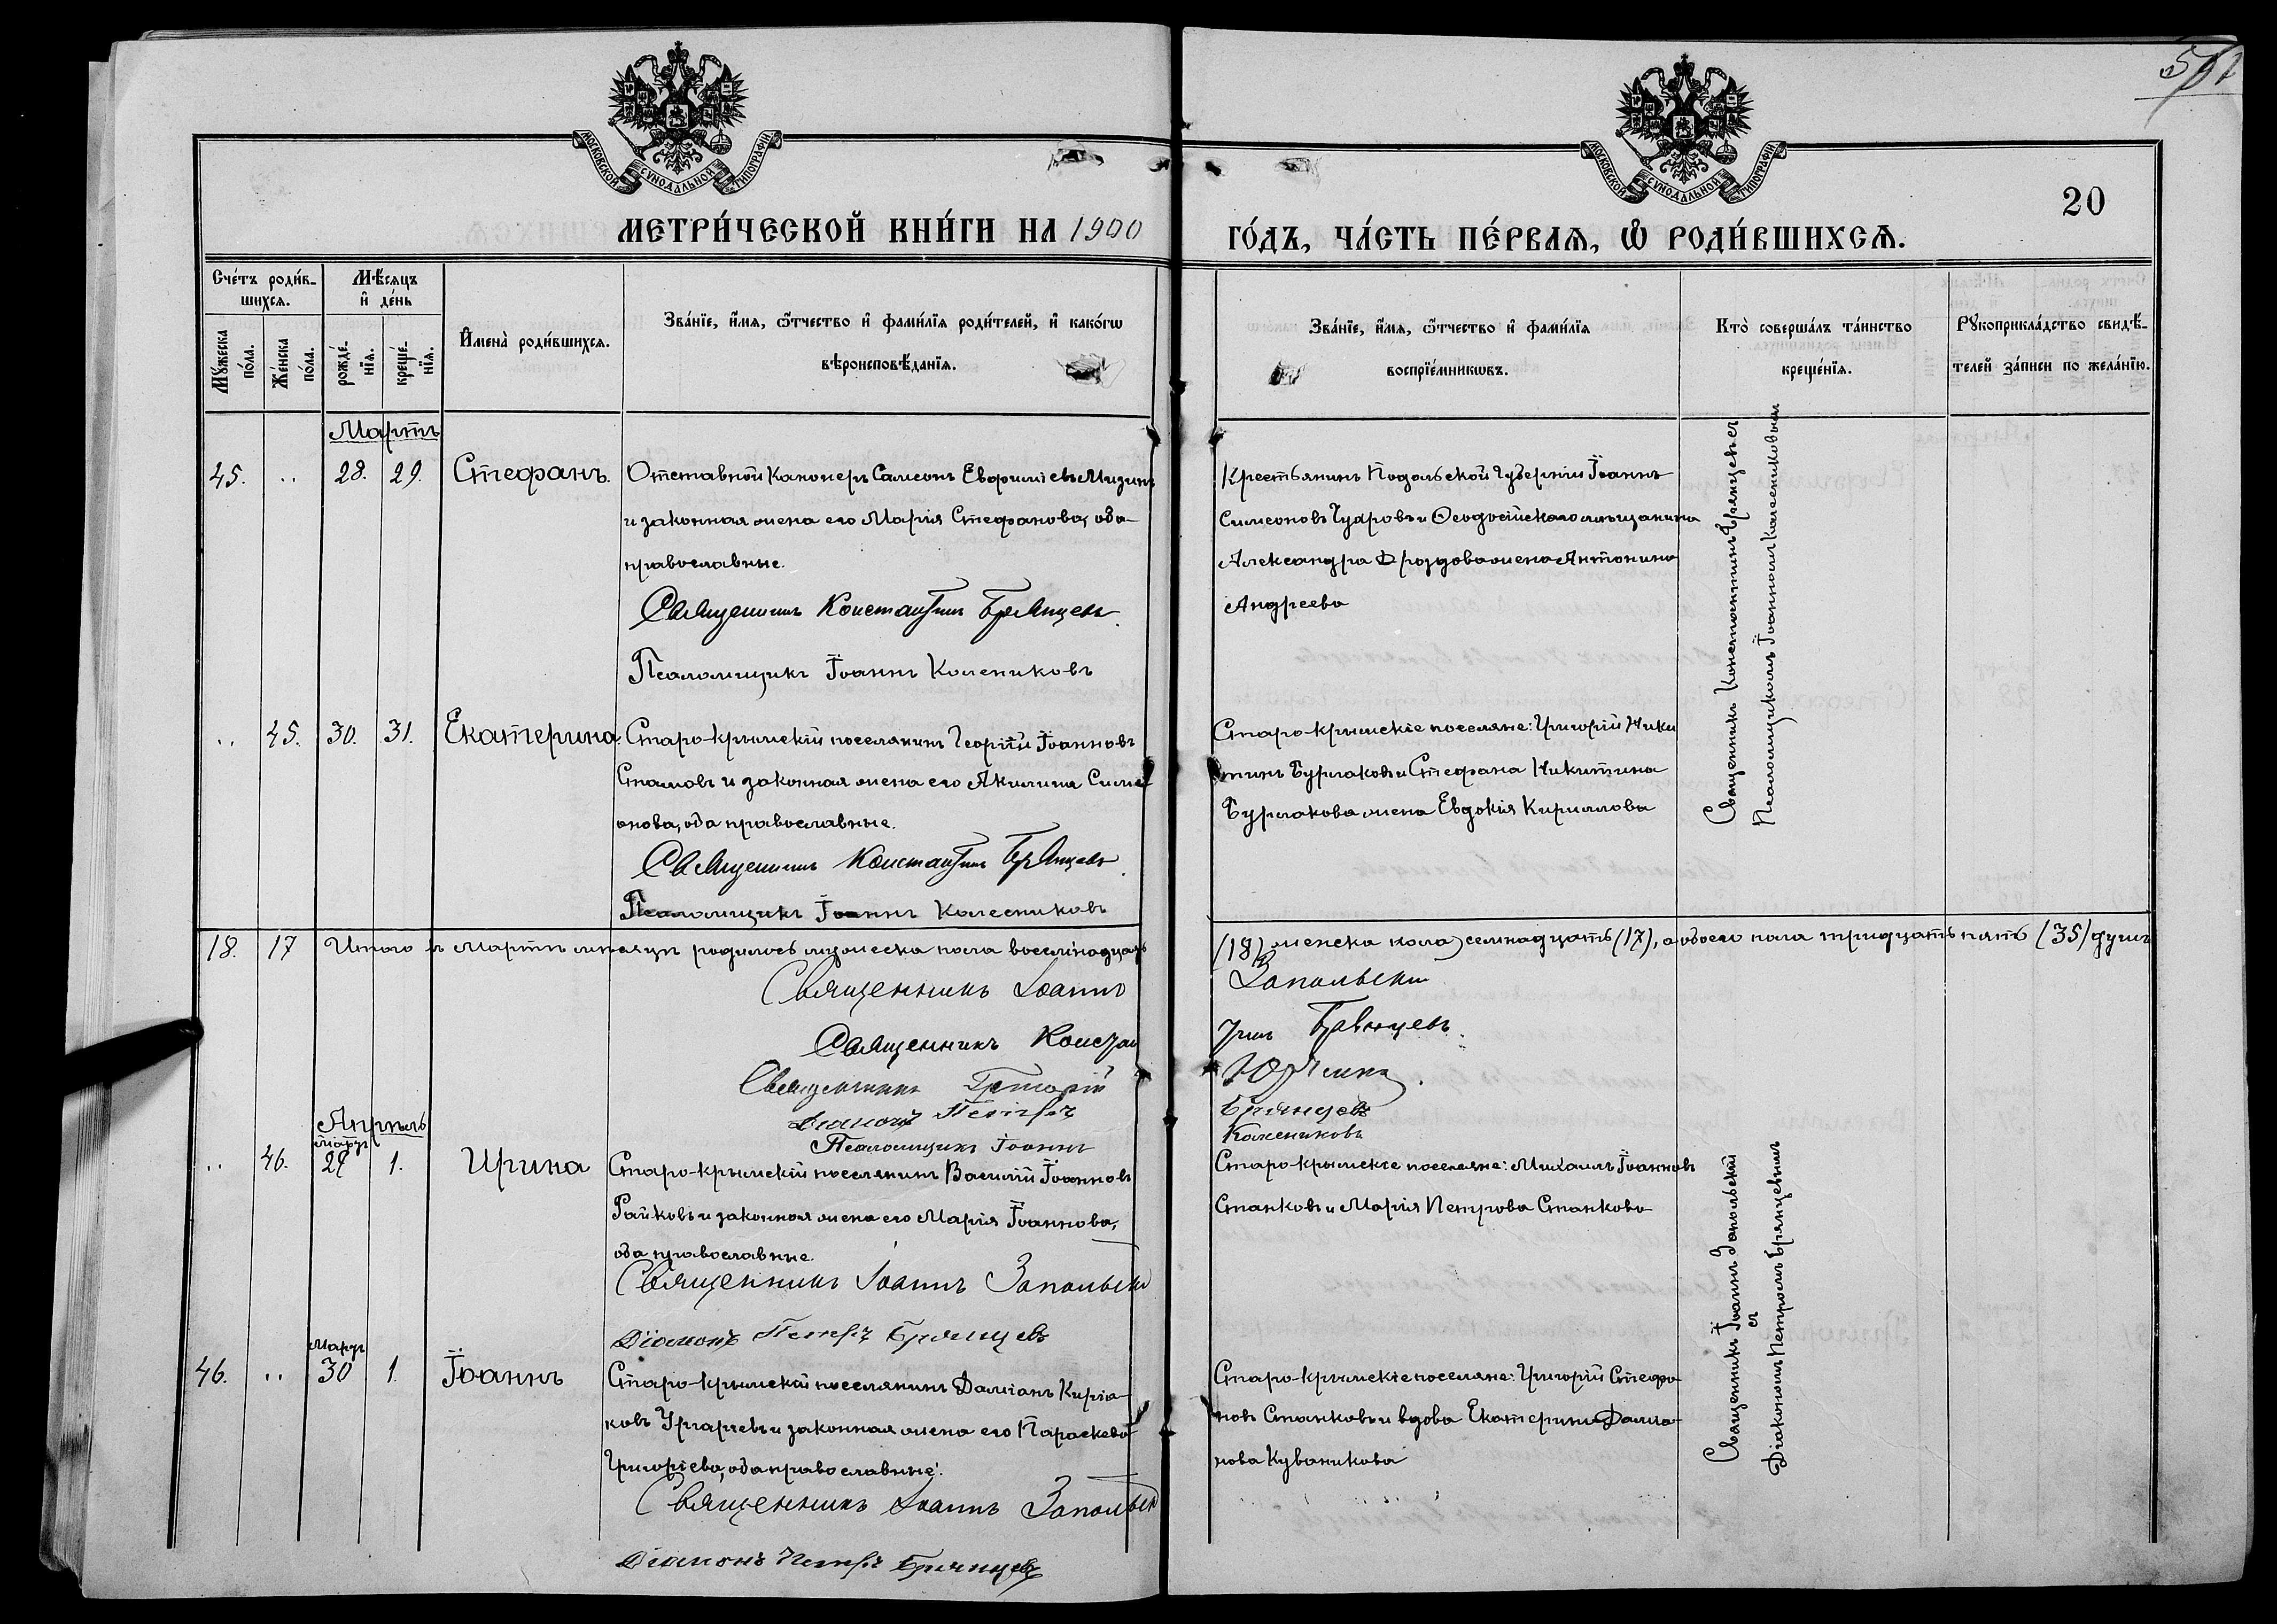 МОСКОВСКОЙ СУНОДАЛЬНОЙ ТИПОГРАФІИ
МОСКОВСКОЙ СУНОДАЛЬНОЙ ТИПОГРАФІИ
20
МЕТРИ́ЧЕСКОЙ КНИ́ГИ НА 1900
ГО́ДЪ, ЧА́СТЬ ПЕ́РВАЯ, Ѡ҆ РОДИ́ВШИХСЯ.
Сче́тъ роди́в-
шихся.
Мѣ́сяцъ
и҆ де́нь
Мꙋ́жеска
по́ла.
Же́нска
по́ла.
рожде́-
нїя.
креще́-
нїя.
И҆мена̀ роди́вшихся.
Зва́нїе, и҆́мя, ѻ҆́тчество и҆ фами́лїя роди́телей, и҆ како́гѡ
вѣроисповѣ́данїя.
Зва́нїе, и҆́мя, ѻ҆́тчество и҆ фами́лїя
воспрїе́мникѡвъ.
Кто̀ соверша́лъ та́инство
креще́нїя.
Рꙋкоприкла́дство свидѣ́-
телей за́писи по жела́нїю.
Мартъ
45. .. 28. 29. Стефанъ. Отставной Канонеръ Самсонъ Евфиміевъ Мизинъ
и законная жена его Марія Стефанова, оба
православные.
Священникъ Константинъ Брянцевъ.
Псаломщикъ Іоаннъ Колесниковъ
Крестьянинъ Подольской Губерніи Іоаннъ
Симеоновъ Чудровъ и Ѳеодосійскаго мѣщанина
Александра Дроздова жена Антонина
Андреева
Священникъ Константинъ Брянцевъ съ
Псаломщикомъ Іоанномъ Колесниковымъ
.. 45. 30. 31. Екатерина. Старо-Крымскій поселянинъ Георгій Іоанновъ
Стамовъ и законная жена его Акилина Симе-
онова, оба православные.
Священникъ Константинъ Брянцевъ.
Псаломщикъ Іоаннъ Колесниковъ
Старо-Крымскіе поселяне: Григорій Ники
тинъ Бурлаковъ и Стефана Никитина
Бурлакова жена Евдокія Кириллова
18. 17 Итого въ Мартѣ мѣсяцѣ родилось мужеска пола восемнадцать
(18), женска пола семнадцать (17), а обоего пола тридцать пять (35) душъ
Священникъ Іоаннъ Запольскій
Священникъ Константинъ Брянцевъ.
Священникъ Григорій
Діаконъ Петръ Брянцевъ
Псаломщикъ Іоаннъ Колесниковъ
Апрѣль
Мартъ
.. 46. 29 1. Ирина Старо-Крымскій поселянинъ Василій Іоанновъ
Райковъ и законная жена его Марія Іоаннова,
оба православные.
Священникъ Іоаннъ Запольскій
Діаконъ Петръ Брянцевъ
Старо-Крымскіе поселяне: Михаилъ Іоанновъ
Станковъ и Марія Петрова Станкова
Священникъ Іоаннъ Запольскій
съ
Діакономъ Петромъ Брянцевымъ
Мартъ
46. .. 30 1. Іоаннъ Старо-Крымскій поселянинъ Даміанъ Киріа-
ковъ и законная жена его Параскева
Григоріева, оба православные.
Священникъ Іоаннъ Запольскій
Діаконъ Петръ Брянцевъ
Старо-Крымскіе поселяне: Григорій Стефа-
новъ Станковъ и вдова Екатерина Даміа-
нова Куваникова